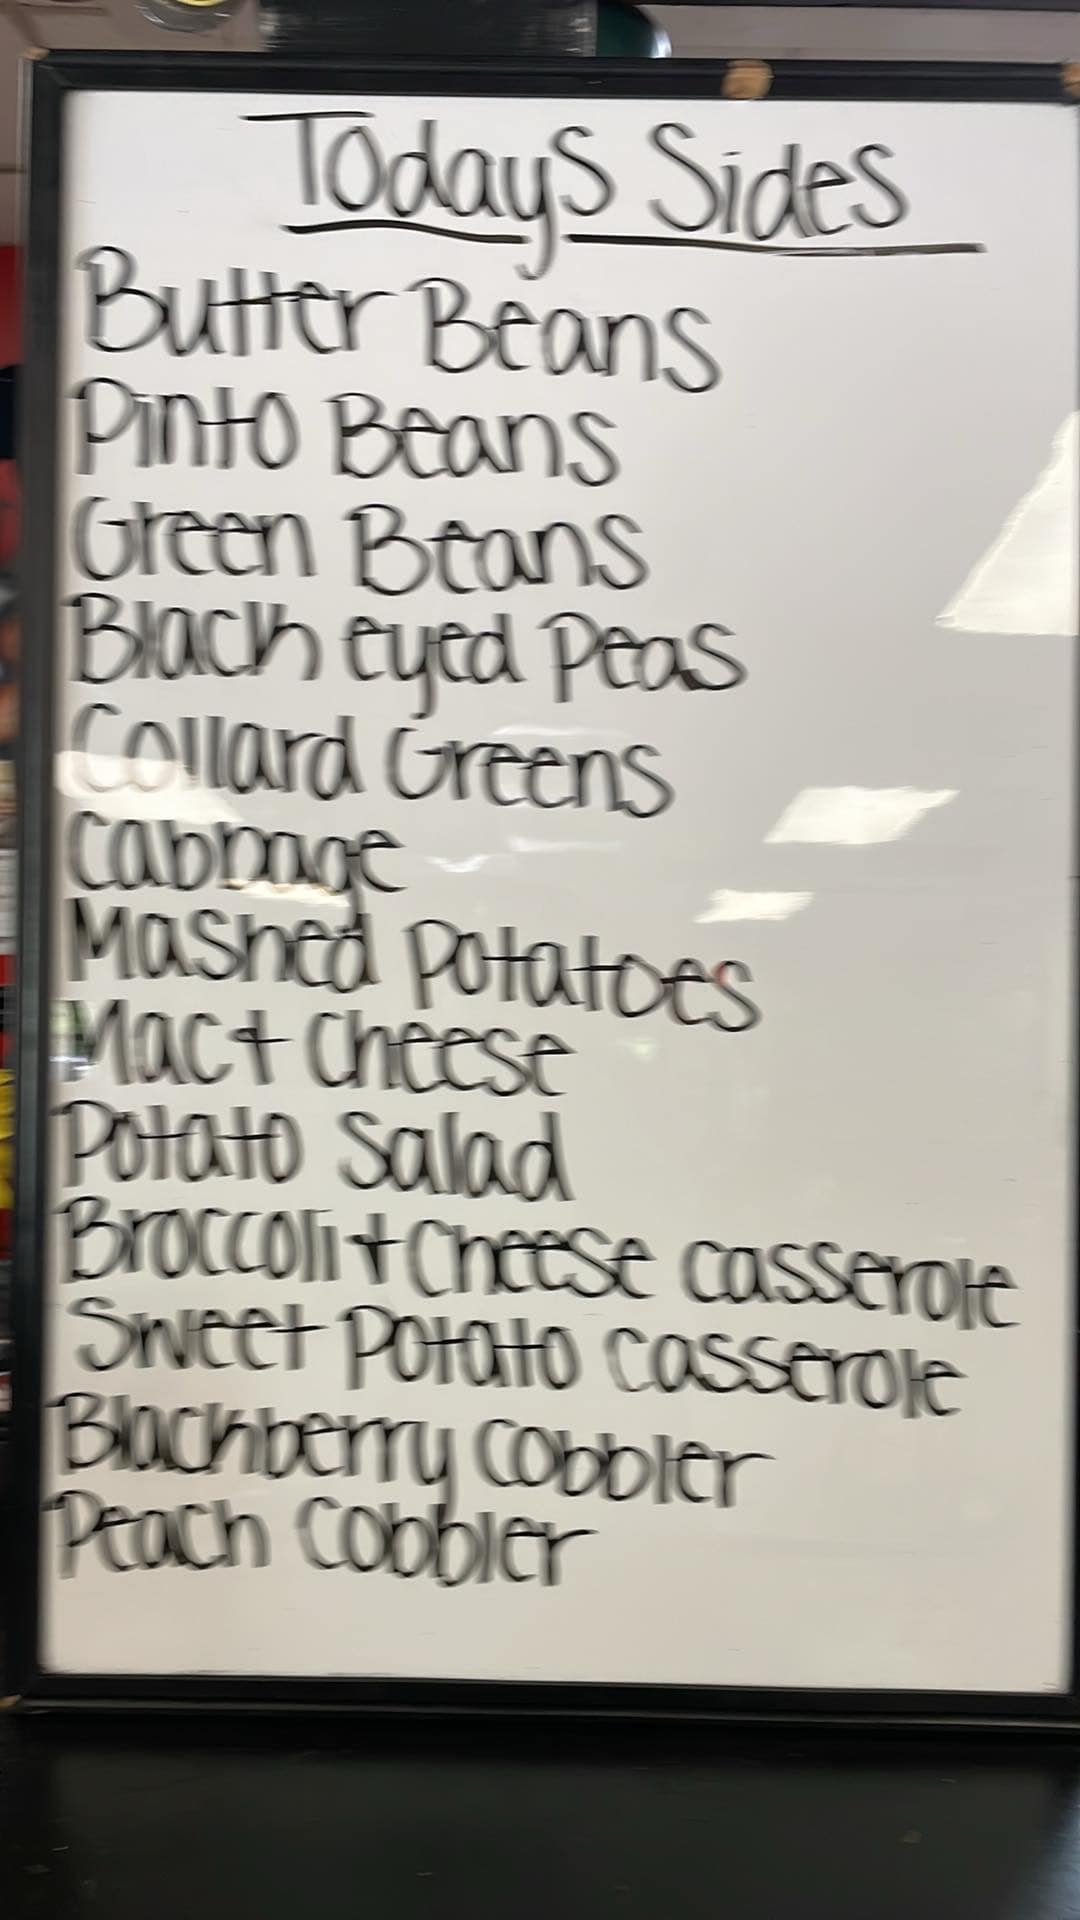 Todays Sides
Butter Beans
Pinto Beans
Green Beans
Black eyed Peas
Collard Greens
Cabbage
Mashed Potatoes
Mac + Cheese
Potato Salad
Broccoli + Cheese Casserole
Sweet Potato Casserole
Blackberry Cobbler
Peach Cobbler